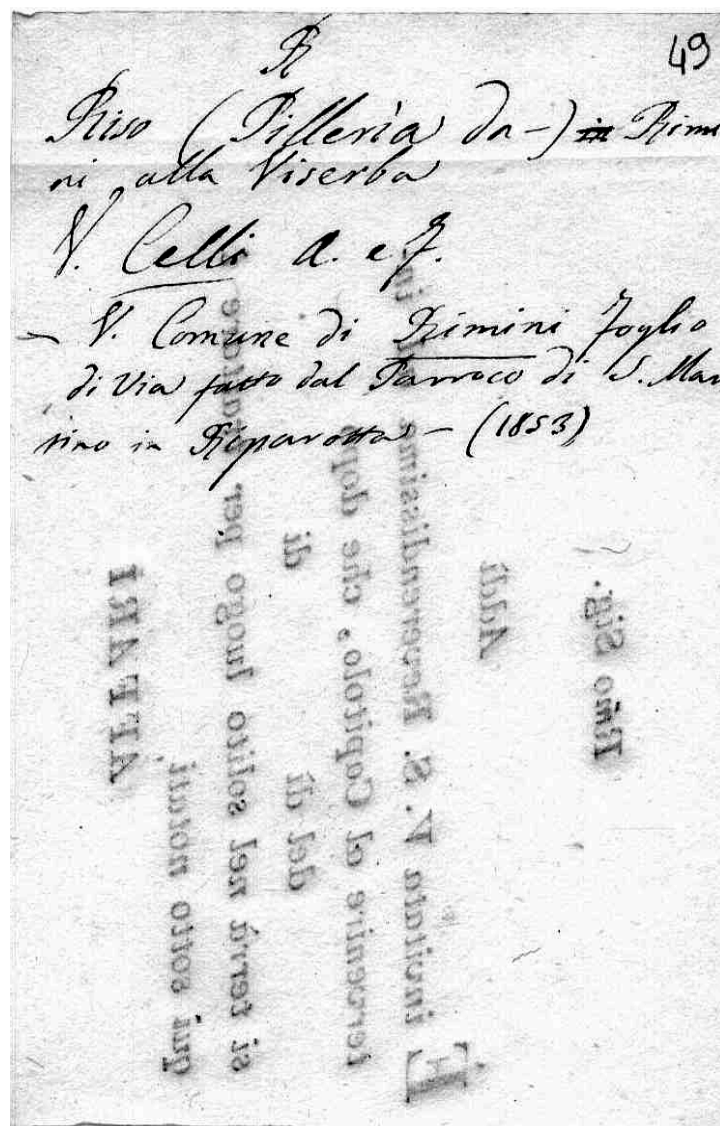 R
49
Riso (Pilleria da-) in Rimi
ni alla Viserba
V. Celli A. e F.
- V. Comune di Rimini Foglio
di Via fatto dal Parroco di S. Mar
tino in Riparotta - (1853)
Rmo Sig.
Addì
È invitata V. S. Reverendissima ad in
tervenire al Capitolo, che dopo
del dì di
si terrà nel solito luogo per
qui sotto notati
AFFARI